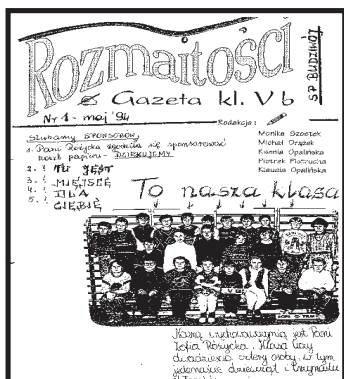 Rozmaitości
Gazeta kl. Vb
S P BUDZIWÓJ
Nr 1 - maj '94
Redakcja:
Monika Szostek
Michał Drążek
Kamila Opalińska
Piotrek Pietrucha
Klaudia Opalińska
Szukamy SPONSORÓW
1. Pani Różycka zgodziła się sponsorować
koszt papieru - DZIĘKUJEMY
2. ? TU JEST
3. ? MIEJSCE
4. ? DLA
5. ? CIEBIE
To nasza klasa
Naszą wychowawczynią jest Pani
Zofia Różycka. Klasa liczy
dwadzieścia cztery osoby, w tym
jedenaście dziewcząt i trzynastu